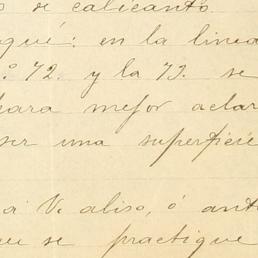 o se calicantó.
qué: en la linea
º 72. y la 73. se
para mejor aclar
ser una superficie
a V. aliso, ó ant
ue se practique